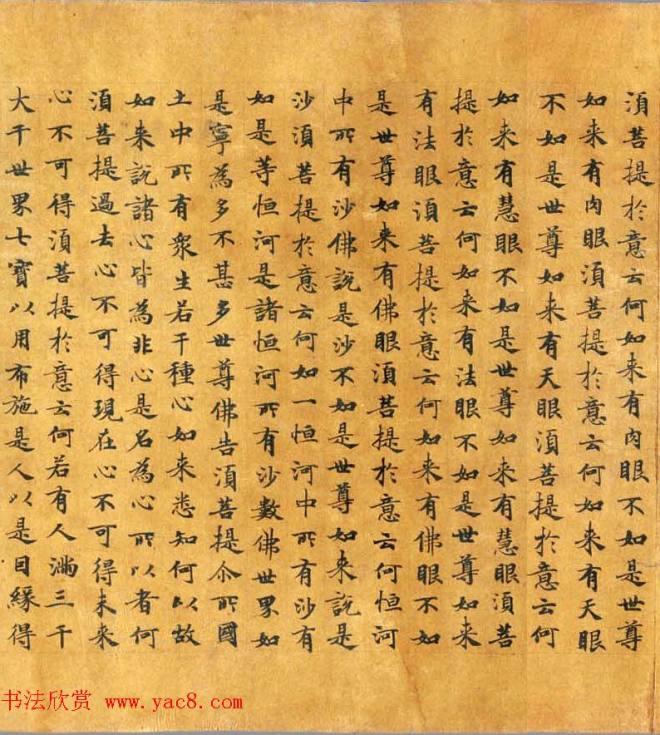 須菩提於意云何如来有肉眼不如是世尊
如来有肉眼須菩提於意云何如来有天眼
不如是世尊如来有天眼須菩提於意云何
如来有慧眼不如是世尊如来有慧眼須菩
提於意云何如来有法眼不如是世尊如来
有法眼須菩提於意云何如来有佛眼不如
是世尊如来有佛眼須菩提於意云何恒河
中所有沙佛說是沙不如是世尊如来說是
沙須菩提於意云何如一恒河中所有沙有
如是等恒河是諸恒河所有沙數佛世界如
是寧為多不甚多世尊佛告須菩提尒所國
土中所有衆生若干種心如来悉知何以故
如来說諸心皆為非心是名為心所以者何
須菩提過去心不可得現在心不可得未来
心不可得須菩提於意云何若有人滿三千
大千世界七寶以用布施是人以是因緣得
书法欣赏 www.yac8.com